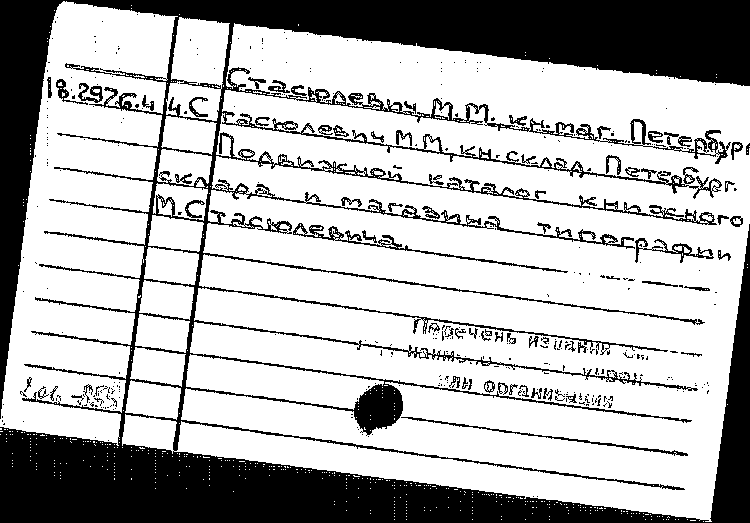 Стасюлевич, М.М., кн.маг. Петербург
18.297б.4 4.Стасюлевич, М.М., кн.склад. Петербург.
Подвижной каталог книжного
склада и магазина типографии
М.Стасюлевича.
Перечень издания см.
или организации